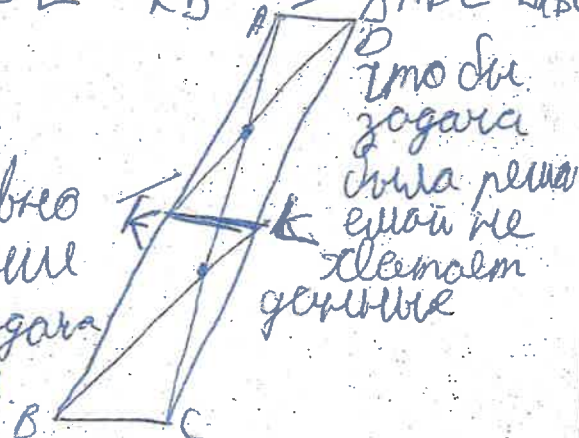 A
D
что бы
задача
была реша
емой не
хватает
данные
вно
ние
дача
K
B
C